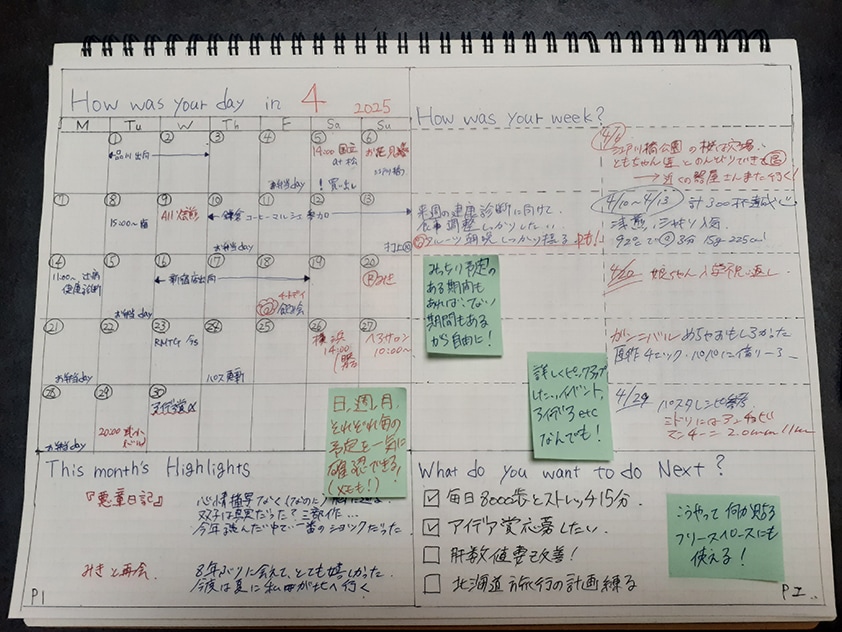 How was your day in 4 2025
M Tu W Th F Sa Su
① ② ③ ④ ⑤ ⑥
品川出向
14:00 国立
at 松
! 買い出し
お花見
江戸川橋
お弁当day
⑦ ⑧ ⑨ ⑩ ⑪ ⑫ ⑬
15:00〜歯
鎌倉 コーヒーマルシェ 参加
お弁当day
⑭ ⑮ ⑯ ⑰ ⑱ ⑲ ⑳
11:00〜
健康診断
お弁当day
新宿店出向
飲み会
㉑ ㉒ ㉓ ㉔ ㉕ ㉖ ㉗
お弁当day
RMTG
パス更新
横浜
14:00
ヘアサロン
10:00〜
㉘ ㉙ ㉚
お弁当day
20:00
アイデア賞〆
How was your week?
4/6
江戸川橋公園の桜は穴場。
ともちゃん
→近くの
さんまた行く!
来週の健康診断に向けて、
食事調整しっかりしたい。
フルーツ
しっかり摂る
4/10〜4/13 計300杯達成
浅煎、シャリ人気
92℃で 3分 15g 225cc!
4/20 娘ちゃん入学祝い返し
ガンニバル めちゃおもしろかった
原作チェック・パパに借りる
4/29 パスタレシピ
ミドリにはアンチョビ
みっちり予定の
ある期間も
あれば、でない
期間もある
から自由に!
詳しくピックアップ
したいイベント、
etc
なんでも!
日、週、月、
それぞれ毎の
予定を一気に
確認できる!
(メモも!)
This month's Highlights
『悪童日記』
心情描写なく(なのに)
双子は真実だった?三部作…
今年読んだ中で一番のショックだった
みきと再会.
8年ぶりに会えて、とても嬉しかった
今度は夏に私が北へ行く
P1
What do you want to do Next?
☑ 毎日8000歩とストレッチ15分.
☑ アイデア賞応募したい.
☐ 肝数値要改善!
☐ 北海道旅行の計画練る
こうやって何か見る
フリースペースにも
使える!